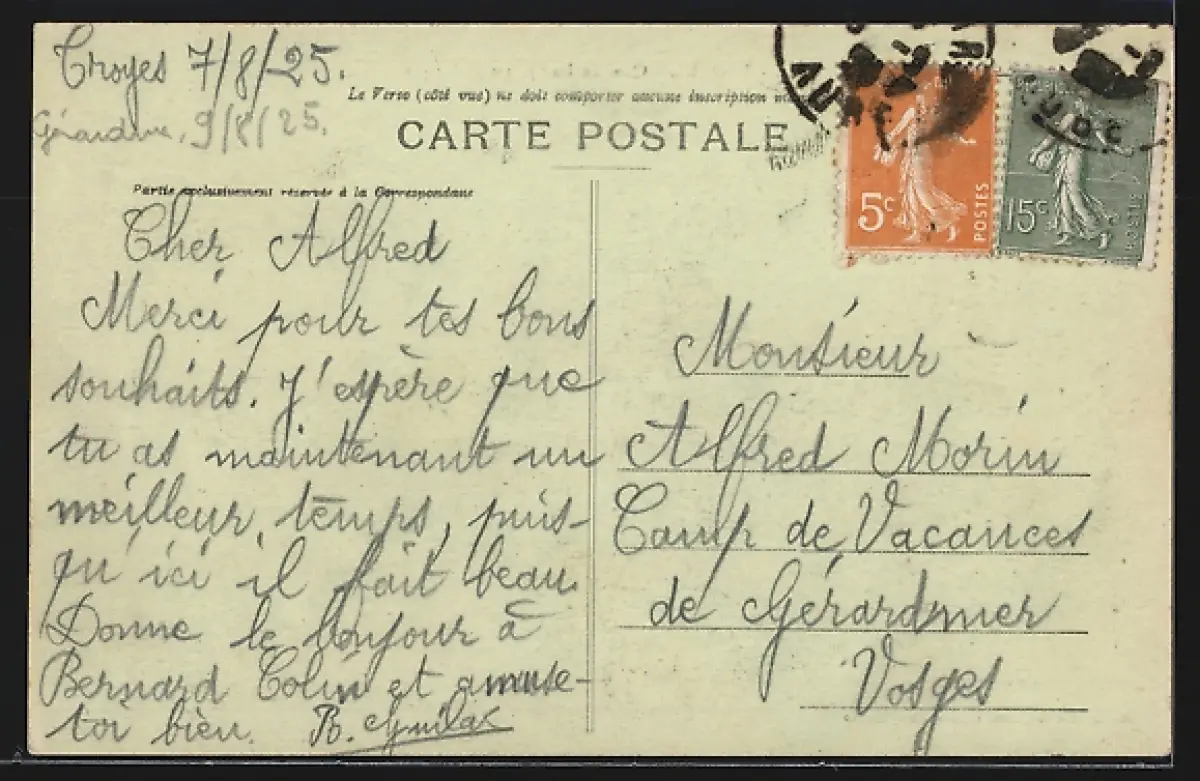 Troyes 7/8/25.
Gérardmer, 9/8/25.
Le Verso (côté vue) ne doit comporter aucune inscription
CARTE POSTALE
Partie exclusivement réservée à la Correspondance
Cher Alfred
Merci pour tes bons
souhaits. J'espère que
tu as maintenant un
meilleur temps, puis-
qu'ici il fait beau.
Donne le bonjour à
Bernard Colin et amuse-
toi bien. B.
AUBE
5c POSTES
15c
Monsieur
Alfred Morin
Camp de Vacances
de Gérardmer
Vosges